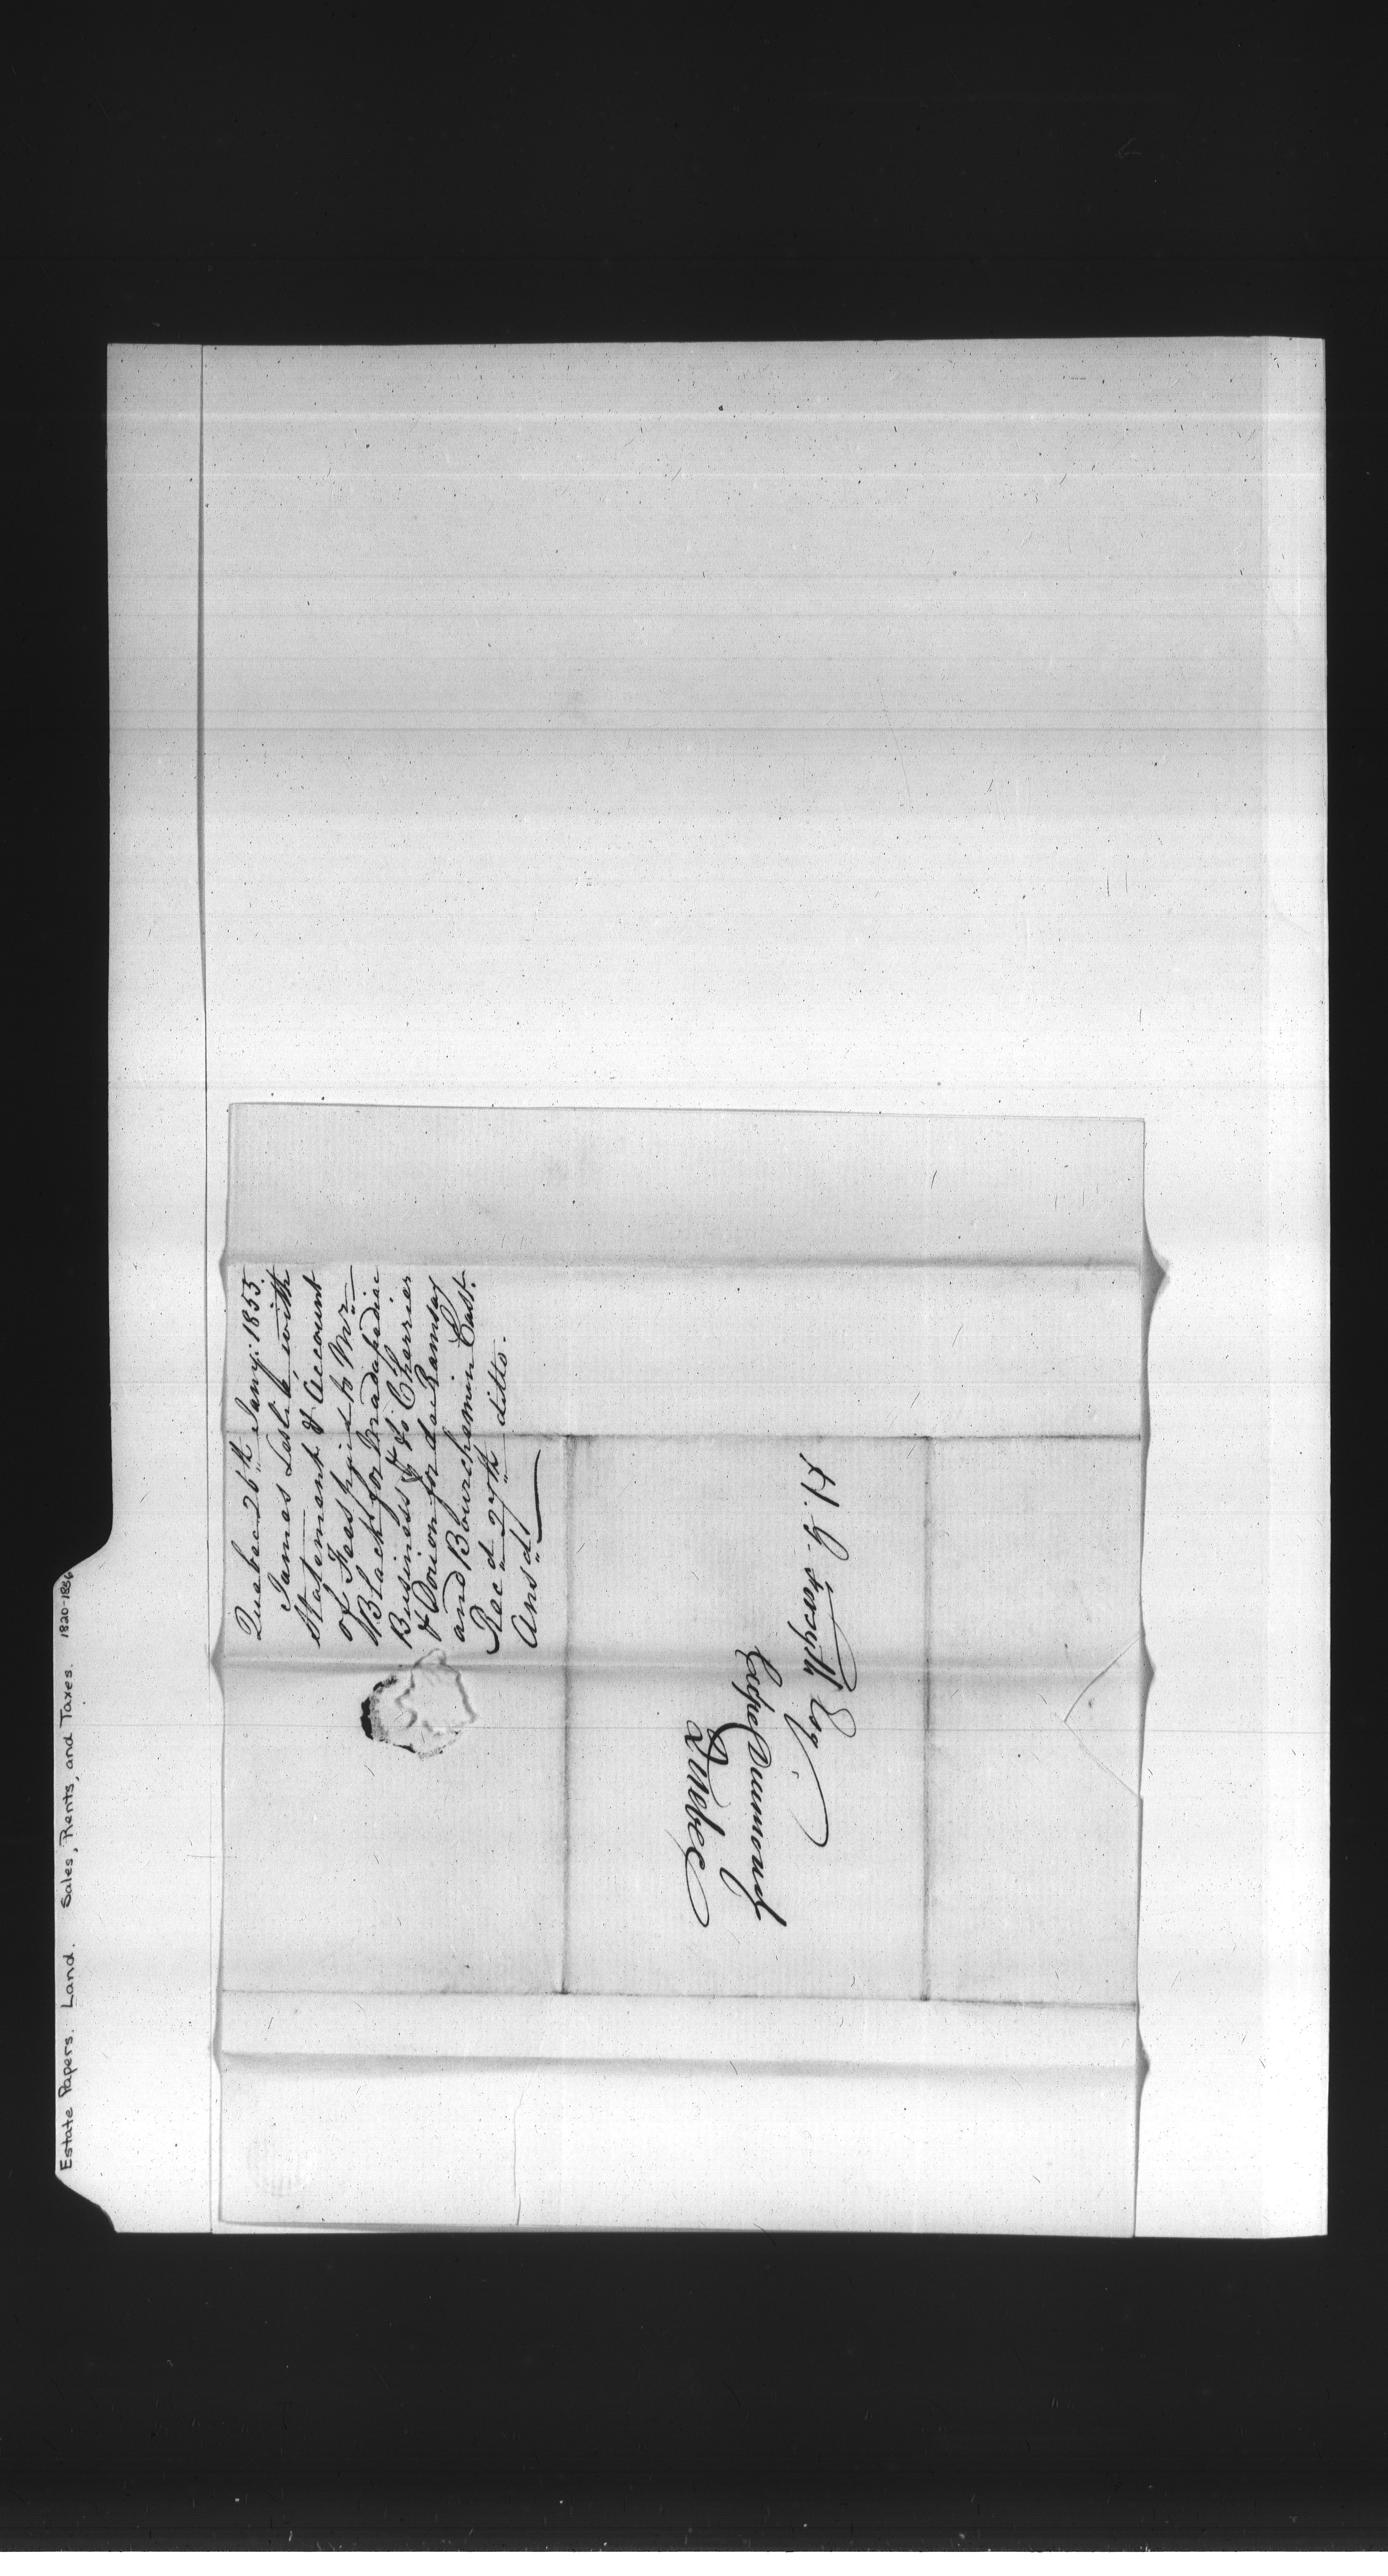 Estate Papers. Land. Sales, Rents, and Taxes. 1820-1836
Quebec 26th Jany: 1853.
James Leslie with
Statement & Account
of Fees paid to Mr
Black for Madapedia
Business & to Cherrier
& Dorion for do Ramsay
and Bourchemin Cast.
Rec'd 27th ditto.
Ans'd
H. G. Forsyth Esq
Cape Diamond
Quebec